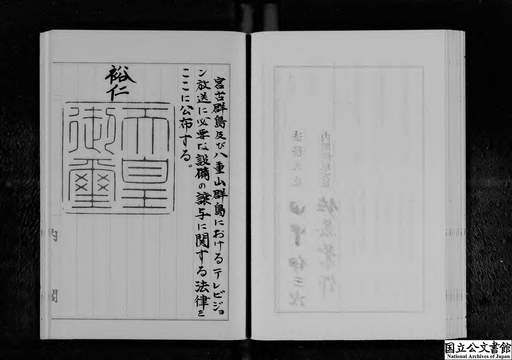 宮古群島及び八重山群島におけるテレビジョ
ン放送に必要な設備の譲与に関する法律を
ここに公布する。
裕仁
天皇
御璽
内閣
国立公文書館
National Archives of Japan